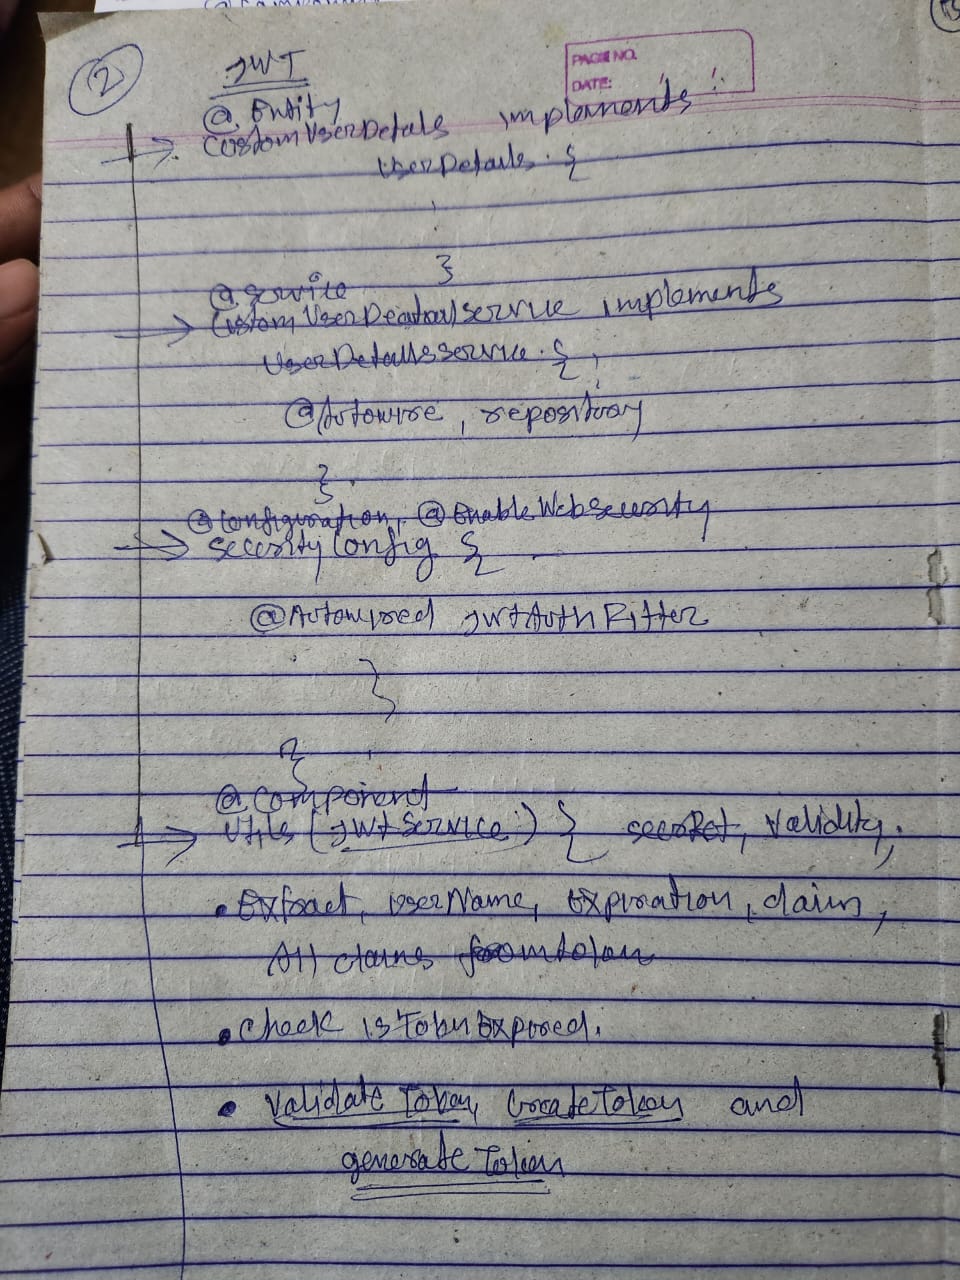 2
JWT
PAGE NO.
DATE:
@ Entity
CustomUserDetals implements
UserDetails. {
}
@ Service
CustomUserDeatailservice implements
UserDetailsservice. {
@Autowire, repository
}.
@Configuration, @ EnableWebSecurity
SecurityConfig {
@Autowired JwtAuthFilter
}
{
@ Component
Utiles (JWtService) { secret, validity,
• Extract, userName, Expiration, claim,
All claims from token
• Check isTokenExpired.
• validate Token, CreateToken and
generate Token